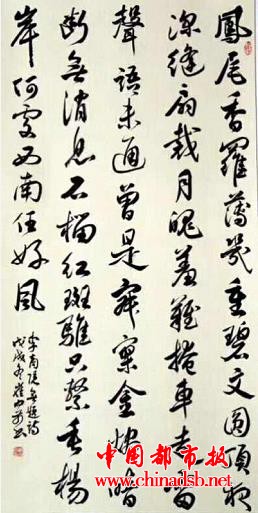 鳳尾香羅薄幾重碧文圓頂夜
深縫扇裁月魄羞難掩車走雷
聲語未通曾是寂寥金燼暗
斷無消息石榴紅斑騅只繫垂楊
岸何處西南任好風
李商隱無題詩
戊戌冬崔
中國都市報
www.chinadsb.net